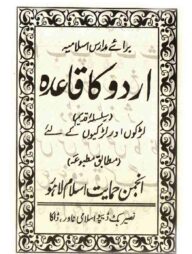 برائے مدارس اسلامیہ
اردو کا قاعدہ
(سلسلۂ قدیم)
لڑکوں اور لڑکیوں کے لئے
(مطابق مطبوعہ)
انجمن حمایت اسلام لاہور
نصیر بک ڈپو اسلامی